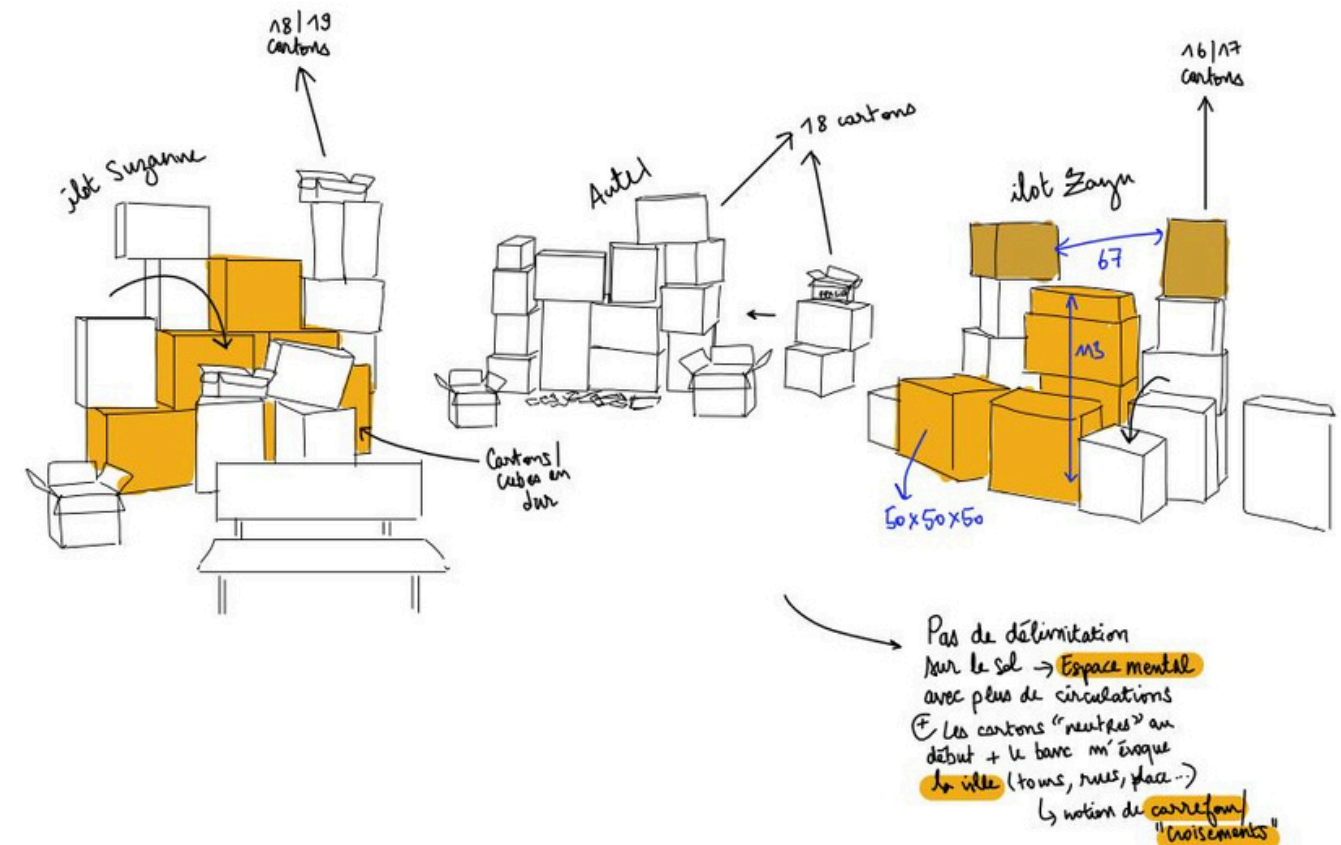 18/19
cartons
îlot Suzanne
Cartons/
cubes en
dur
Autel
18 cartons
16/17
cartons
ilot Zayn
67
113
50x50x50
Pas de délimitation
sur le sol → Espace mental
avec plus de circulations
⊕ Les cartons "neutres" au
début + le banc m'évoque
la ville (tours, rues, place...)
↳ notion de carrefour/
"croisements"